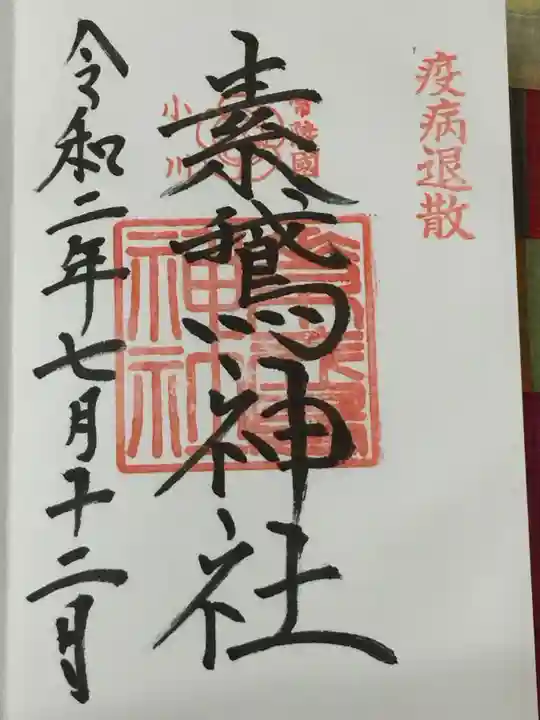 疫病退散
常陸國
小川
素鵞神社
素鵞神社
令和二年七月十二日